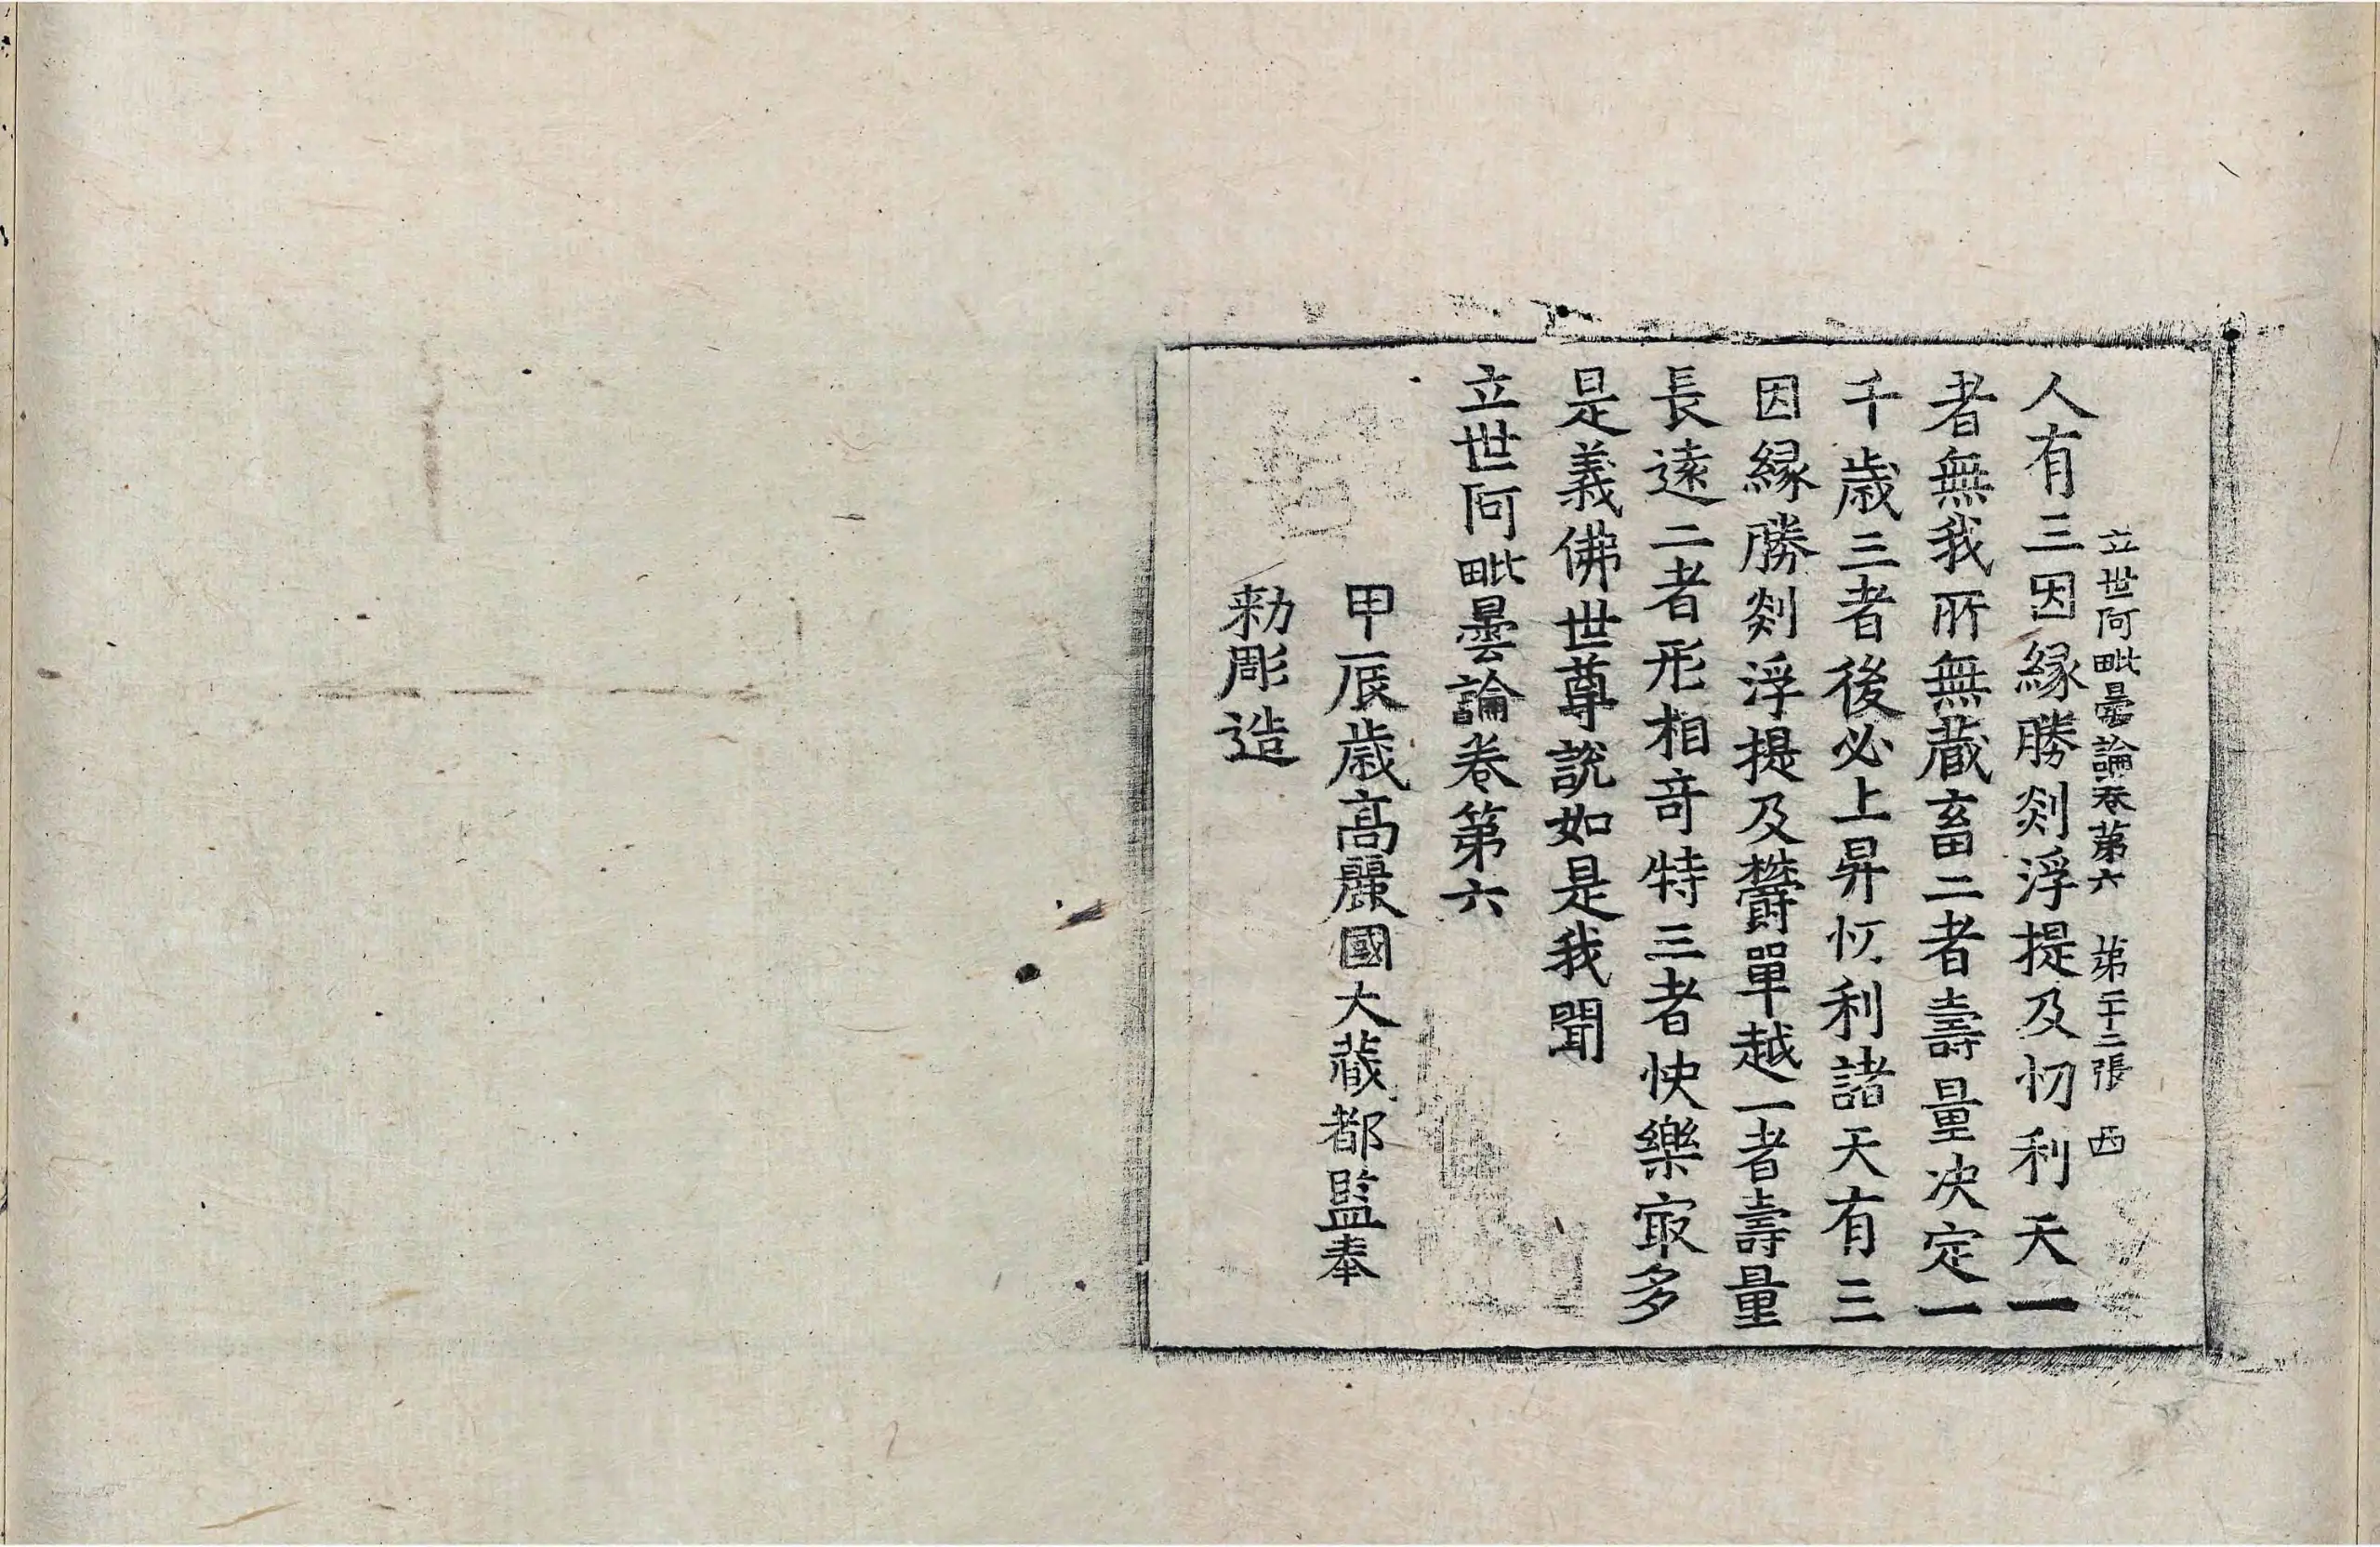 立世阿毗曇論卷第六 第二十二張 西
人有三因縁勝剡浮提及忉利天一
者無我所無蔵畜二者壽量決定一
千歲三者後必上昇忉利諸天有三
因縁勝剡浮提及欝單越一者壽量
長遠二者形相竒特三者快樂㝡多
是義佛世尊說如是我聞
立世阿毗曇論卷第六
甲辰歲高麗國大藏都監奉
勑彫造